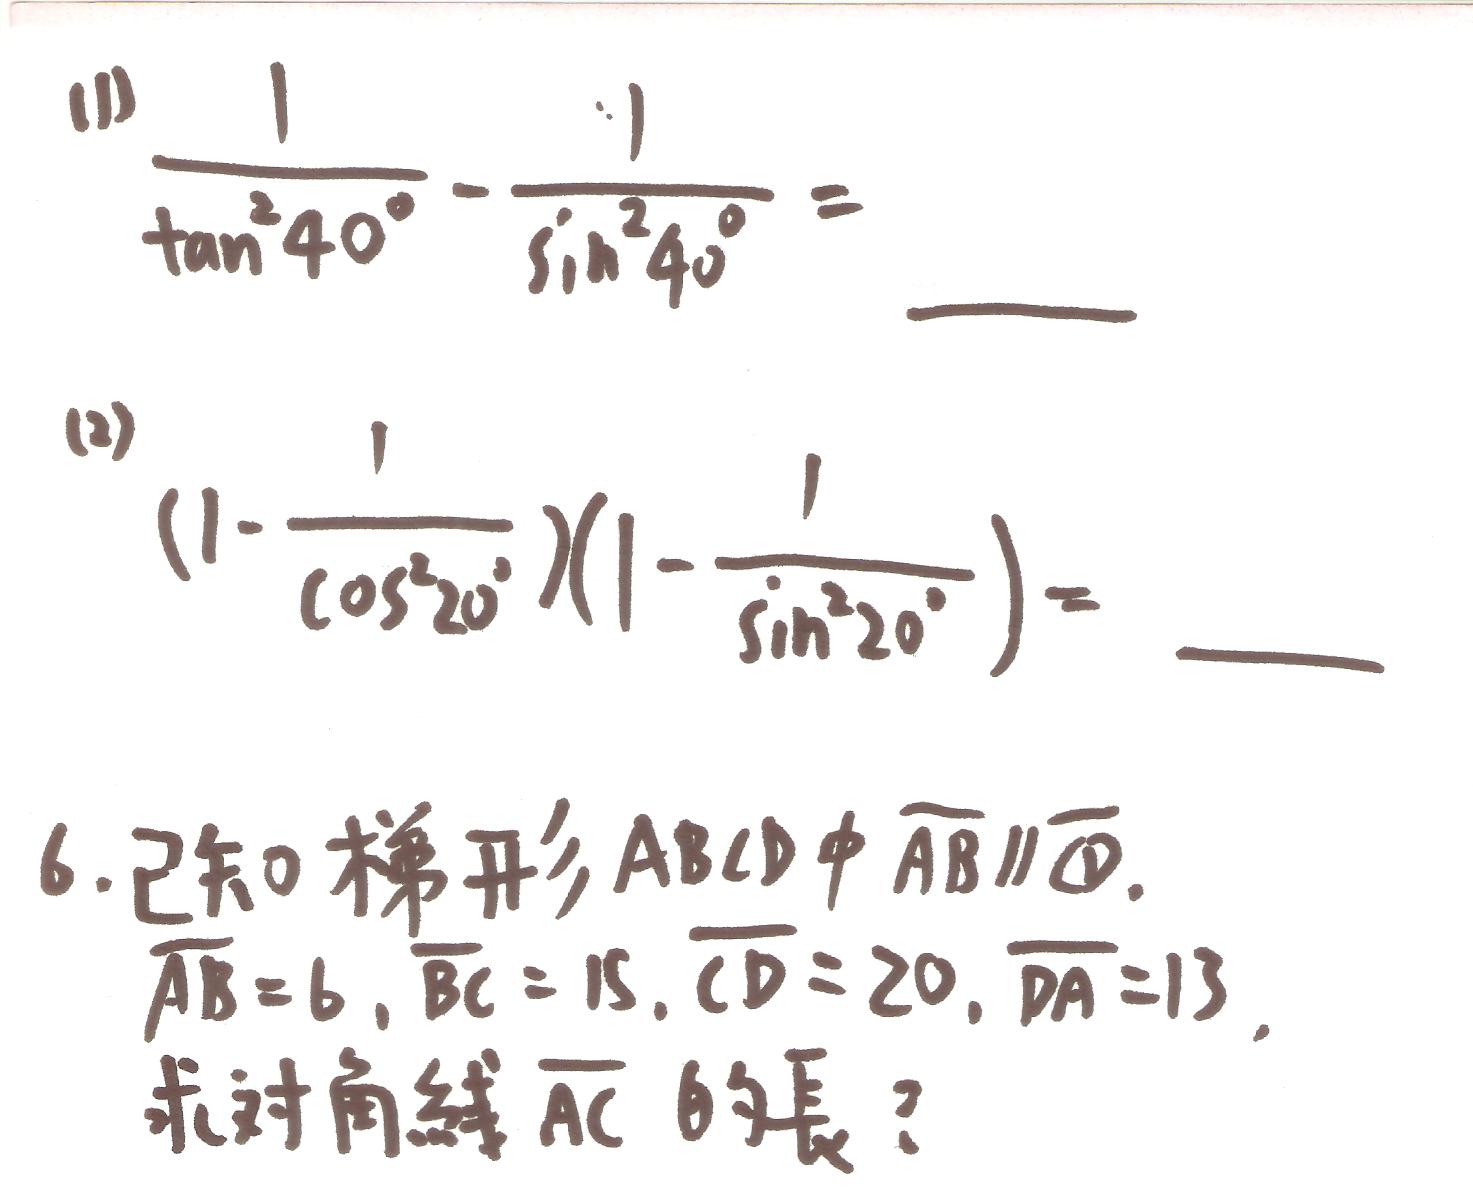 (1) 1/tan²40° - 1/sin²40° = ____
(2) (1 - 1/cos²20°)(1 - 1/sin²20°) = ____
6. 已知梯形ABCD中 A̅B̅ // C̅D̅.
A̅B̅ = 6, B̅C̅ = 15, C̅D̅ = 20, D̅A̅ = 13,
求对角線 A̅C̅ 的長?